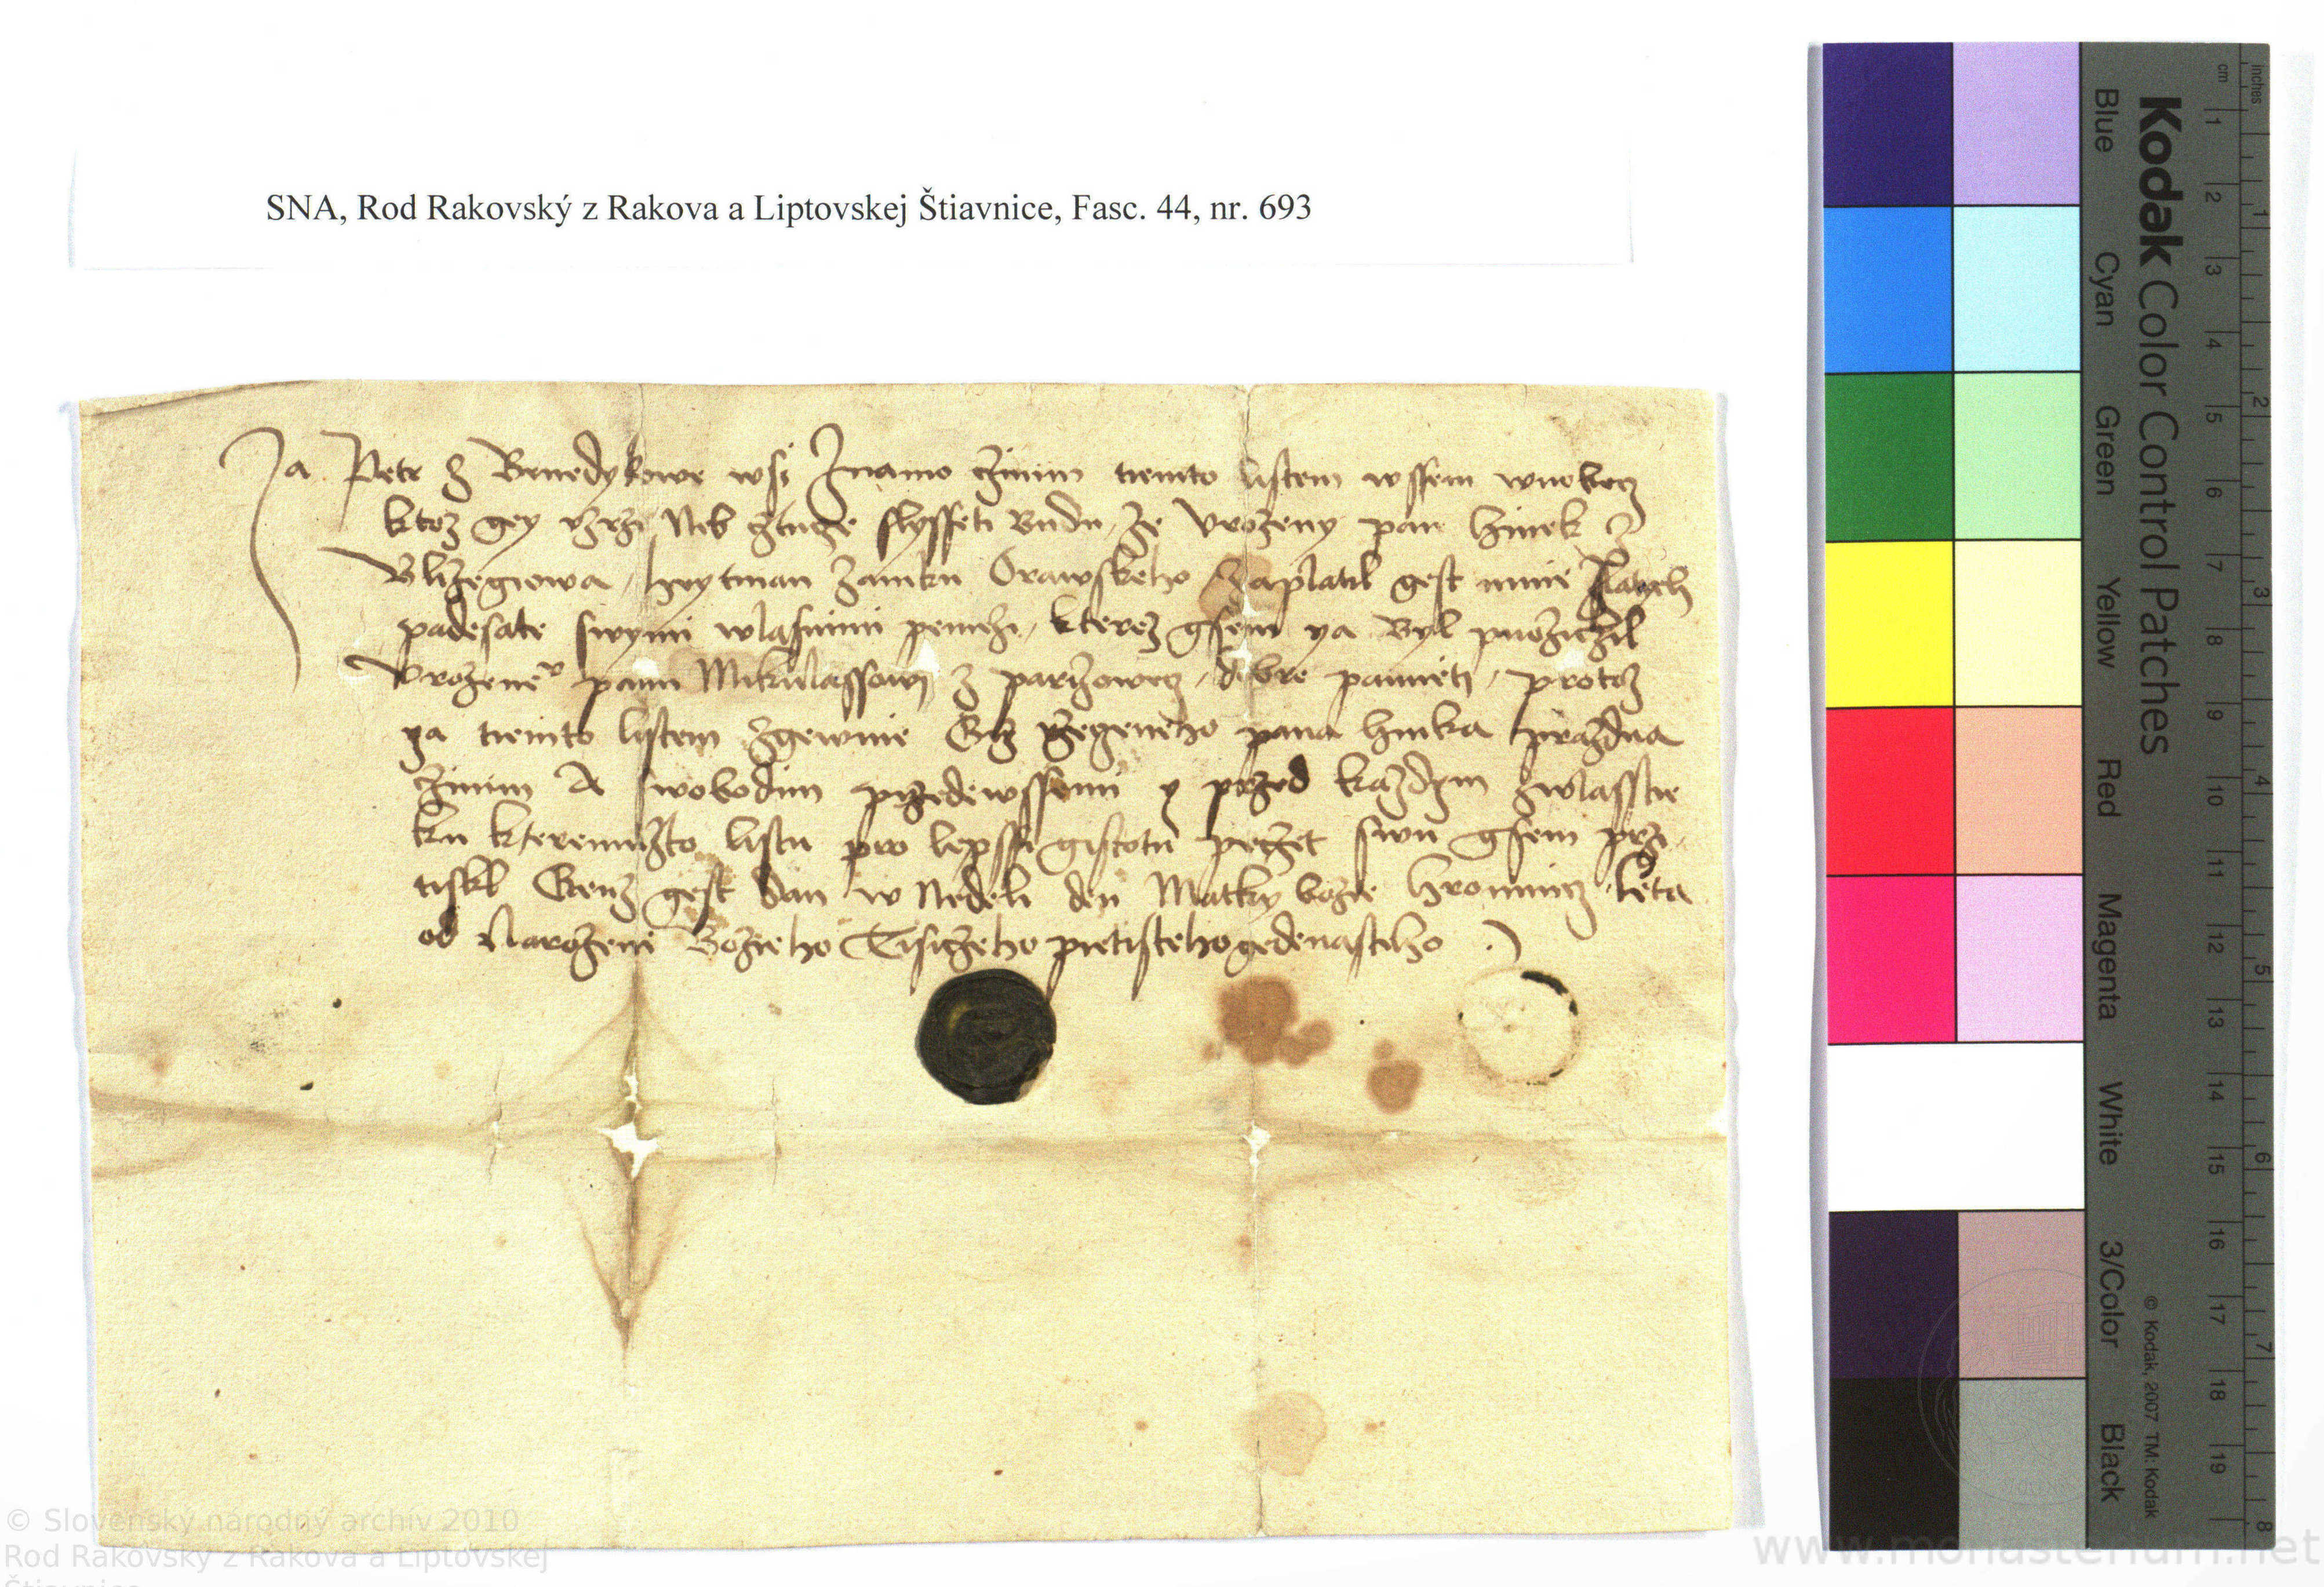 SNA, Rod Rakovský z Rakova a Liptovskej Štiavnice, Fasc. 44, nr. 693
Ja Petr z Benedykowe wsi Znamo cžinim tiemto listem wssem wuobecz
ktoz gey vzrzi Neb cžtucze slysseti Budu, že Vrozeny pan hinek z
heytman Zamku Orawskeho Zaplatil gest mnie Zlatych
padesate swymi wlasnimi penizi, kterez gsem ya Byl puožicžil
Vrozenemu panu Mikulassowi z parizowecz, dobre pamieti, protoz
ya tiemto listem Zgewnie pana hinka prazdna
cžinim A swobodim przedewssemi y przed každym zwlasstie
ku kteremužto listu pro lepssi gistotu peczet swu gsem przi-
tiskl Genz gest Dan w Nedeli den Matky božie hromnicz, leta
od Narozenie Božieho Tisiczeho pietisteho gedenasteho
Kodak Color Control Patches
Blue Cyan Green Yellow Red Magenta White 3/Color Black
© Kodak, 2007 TM: Kodak
cm 1 2 3 4 5 6 7 8 9 10 11 12 13 14 15 16 17 18 19
inches 1 2 3 4 5 6 7 8
© Slovenský národný archív 2010
Rod Rakovský z Rakova a Liptovskej
Štiavnice
www.monasterium.net